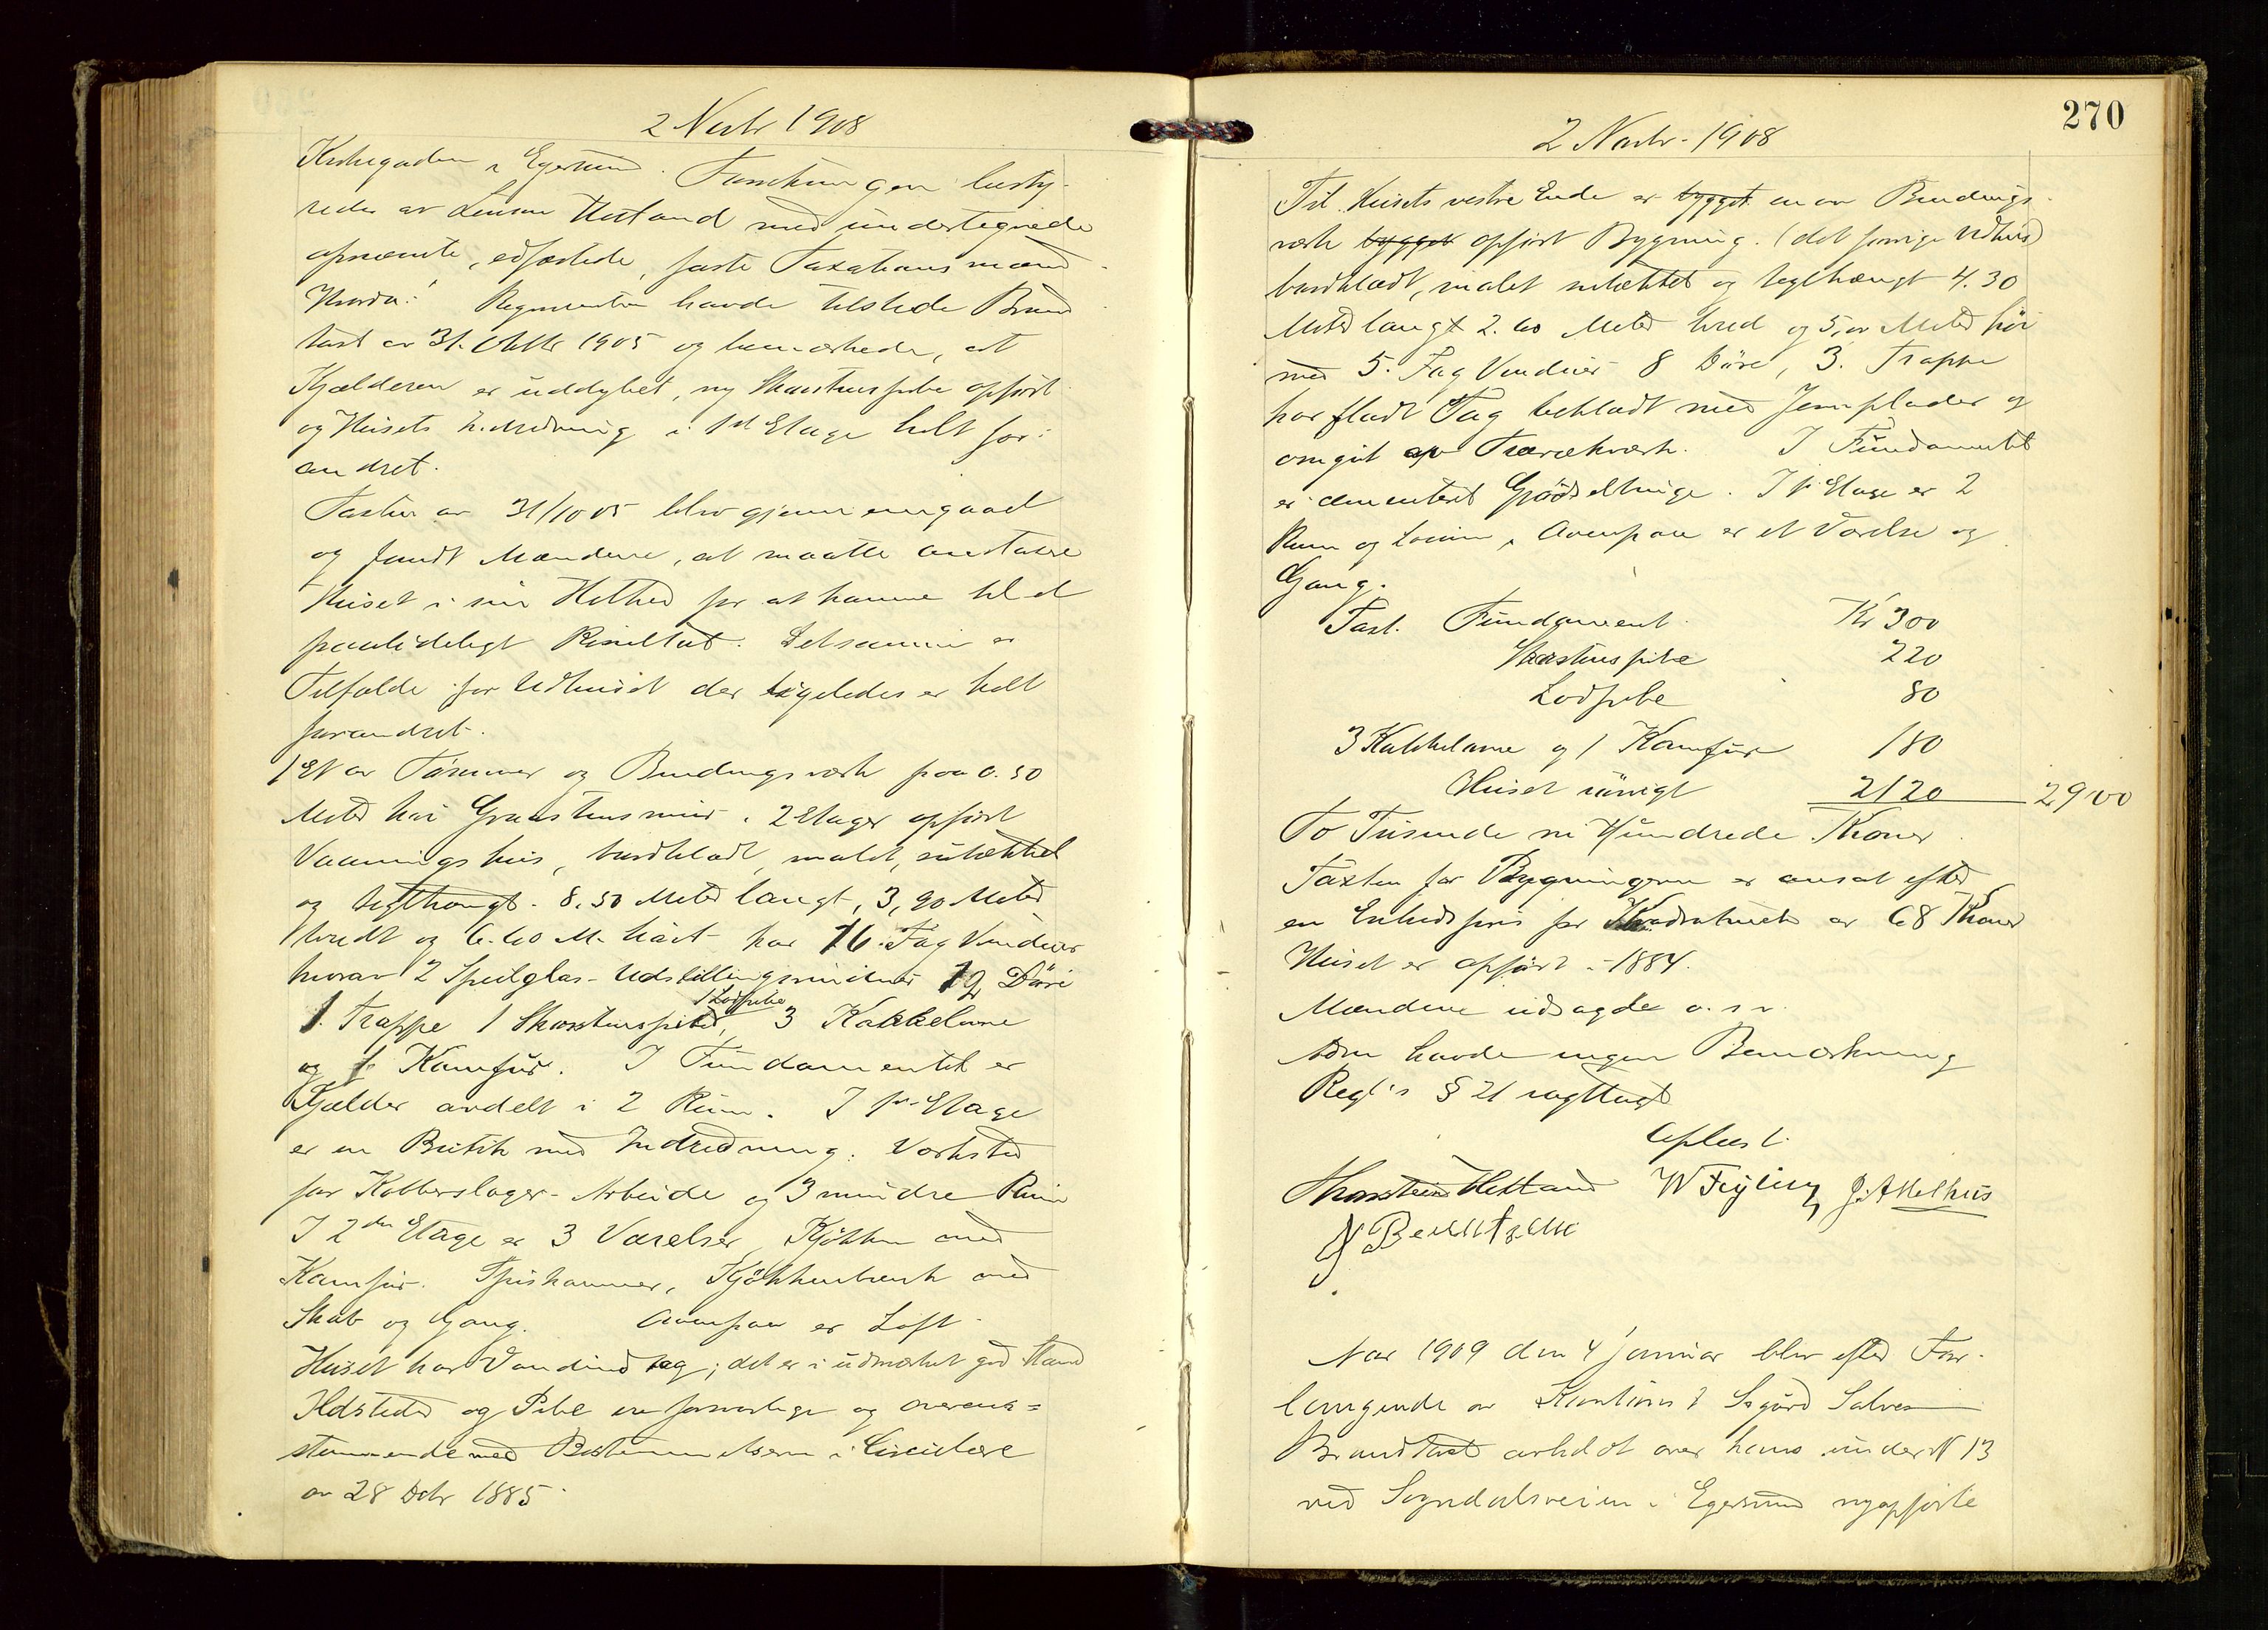 2 Novbr 1908
Kirkegaden i Egersund. Forretningen besty-
redes av Lensm Hetland med undertegnede
opnævnte, edfæstede, faste Taxationsmænd
Hvorda! Regvirenten havde tilstede Brand
taxt av 31. Oktbr 1905 og bemærkede, at
Kjælderen er uddybet, ny Skorstenspibe opført
og Husets Indredning i 1st Etage helt for:
andret.
Taxten av 31/10 05 blev gjennemgaaet
og fandt Mændene, at maatte omtaxere
Huset i sin Helhed for at komme til et
paalideligt Resultat. Detsamme er
Tilfælde for Udhuset der ligeledes er helt
forandret.
1 Et av Tømmer og Bindingsværk paa 0.50
Meter høi Graastensmur i 2 Etager opført
Vaaningshus, bordklædt, malet, sutækket
og teglhængt. 8,50 Meter langt, 3,90 Meter
bredt og 6.60 M. høit har 16 Fag Vinduer
hvorav 2 Speilglas-Udstillingsvinduer 12 Døre
1 Trappe 1 Skorstenspibe, 1 Lodpibe 3 Kakkelovne
og 1 Komfur. I Fundamentet er
Kjælder avdelt i 2 Rum. I 1ste Etage
er en Butik med Indredning. Værksted
for Kobberslager-Arbeide og 3 mindre Rum
I 2den Etage er 3 Værelser, Kjøkken med
Komfur. Spiskammer, Kjøkkenbænk med
Skab og Gang. Ovenpaa er Loft
Huset har Vandindlæg; det er i udmærket god Stand
Ildsteder og Pibe ere forsvarlige og overens=
stemmende med Bestemmelserne i Circulære
av 28 Dcbr 1885.
270
2 Novbr. 1908
Til Husets vestre Ende er bygget en av Bindings-
værk bygget opført Bygning. (det forrige Udhus)
bordklædt, malet sutækket og teglhængt 4.30
Meter langt 2.60 Meter bred og Meter høi
med 5. Fag Vinduer 8 Døre, 3. Trappe
har fladt Tag beklædt med Jernplader og
omgit av Trærækværk. I Fundamentet
er cementeret Gjødselbinge. I 1ste Etage er 2
Rum og Locum, Ovenpaa er et Værelse og
Gang.
Taxt. Fundament. Kr 300
Skorstenspibe 220
Lodpibe 80
3 Kakkelovne og 1 Komfur 180
Huset iøvrigt 2120 2900
To Tusende ni Hundrede Kroner
Taxten for Bygningerne er ansat efter
en Enhedspris pr Kvadratmeter av 68 Kroner
Huset er opført i 1884.
Mændene udsagde o. s v.
som havde ingen Bemærkning
Regl's § 21 iagttagt
Oplæst.
Thorstein Hetland W Feyling J. A Melhus
N Berentsen
Aar 1909 den 4 januar blev efter For-
langende av Sigurd Salvesen
Brandtaxt avholdt over hans under N 13
ved Sogndalsveien i Egersund nyopførte